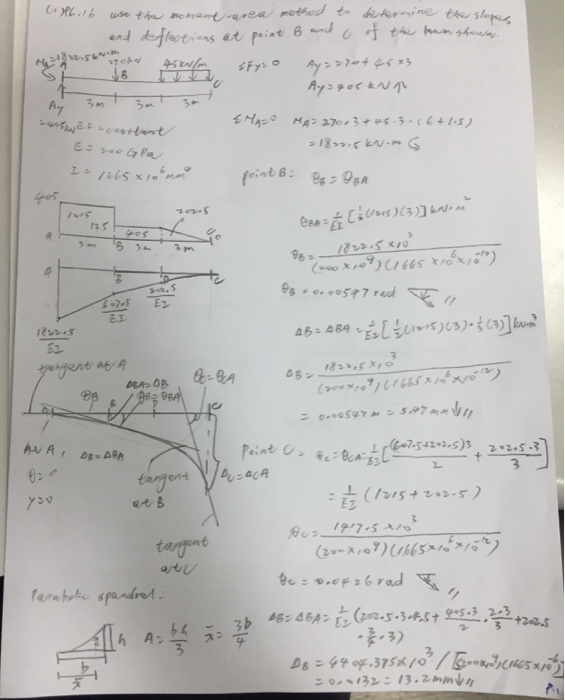 use the moment-area method to determine the slopes
and deflections at point B and C of the beam shown.
MA=1822.5kN·m
270kN
45kN/m
ΣFy=0 Ay=270+45×3
A B C
Ay=405kN↑
3m 3m 3m
Ay
=405kN EI=constant
E=200GPa
I=1665×10⁶mm⁴
ΣMA=0 MA=270·3+45·3·(6+1.5)
=1822.5kN·m
point B: θB=θBA
405
1215
135
405
202.5
3m B 3m 3m C
θBA=1/EI[½(1215)(3)]kN·m²
θB=1822.5×10³/(200×10⁹)(1665×10⁶×10⁻¹²)
θB=0.00547rad
A B D C
607.5/EI
202.5/EI
1822.5/EI
ΔB=ΔBA=1/EI[½(1215)(3)·⅓(3)]kN·m³
ΔB=1822.5×10³/(200×10⁹)(1665×10⁶×10⁻¹²)
=0.00547m=5.47mm↓
tangent at A
θB
ΔBA=ΔB
θB=θBA
θC=θCA
B C
At A,
θ=0
y=0
ΔB=ΔBA
tangent
at B
ΔC=ΔCA
tangent
at C
Point C: θC=θCA=1/EI[(607.5+202.5)3/2+202.5·3/3]
=1/EI(1215+202.5)
θC=1417.5×10³/(200×10⁹)(1665×10⁶×10⁻¹²)
θC=0.0426rad
Parabolic spandrel:
h
b
x̄
A=bh/3 x̄=3b/4
ΔB=ΔBA=1/EI(202.5·3·4.5+405·3/2·2·3/3+202.5
·¾·3)
ΔB=4404.375×10³/[(200×10⁹)(1665×10⁻⁶)]
=0.0132=13.2mm↓
P.1